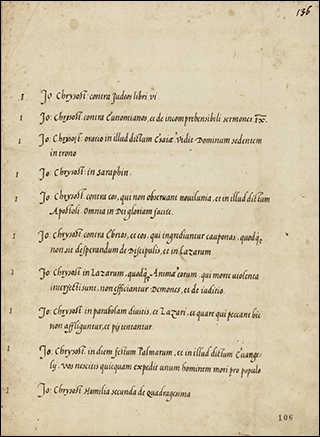 136
1 Jo Chrysost: contra Judeos libri vi
1 Jo: Chrysost: contra Eunomianos, et de incomprehensibili sermones IX.
1 Jo: Chrysost: oratio in illud dictum Esaiæ vidit Dominum sedentem
in trono
1 Jo: Chrysost: in Saraphin.
1 Jo: Chrysost: contra eos, qui non observant novilunia, et in illud dictum
Apostoli. Omnia in Dei gloriam facite.
1 Jo: Chrysost: contra Ebrios, et eos, qui ingrediuntur cauponas, quodq;
non sit desperandum de Discipulis, et in Lazarum
1 Jo: Chrysost in Lazarum, quodq; Animæ eorum, qui morte violenta
interfecti sunt, non efficiantur Demones, et de iuditio.
1 Jo: Chrysost: in parabolam divitis, et Lazari, et quare qui peccant hic
non affliguntur, et pij tentantur.
1 Jo: Chrysost: in diem festum Palmarum, et in illud dictum Evange-
ly. Vos nescitis quicquam expedit unum hominem mori pro populo
1 Jo: Chrysost: Homilia secunda de Quadragesima
106